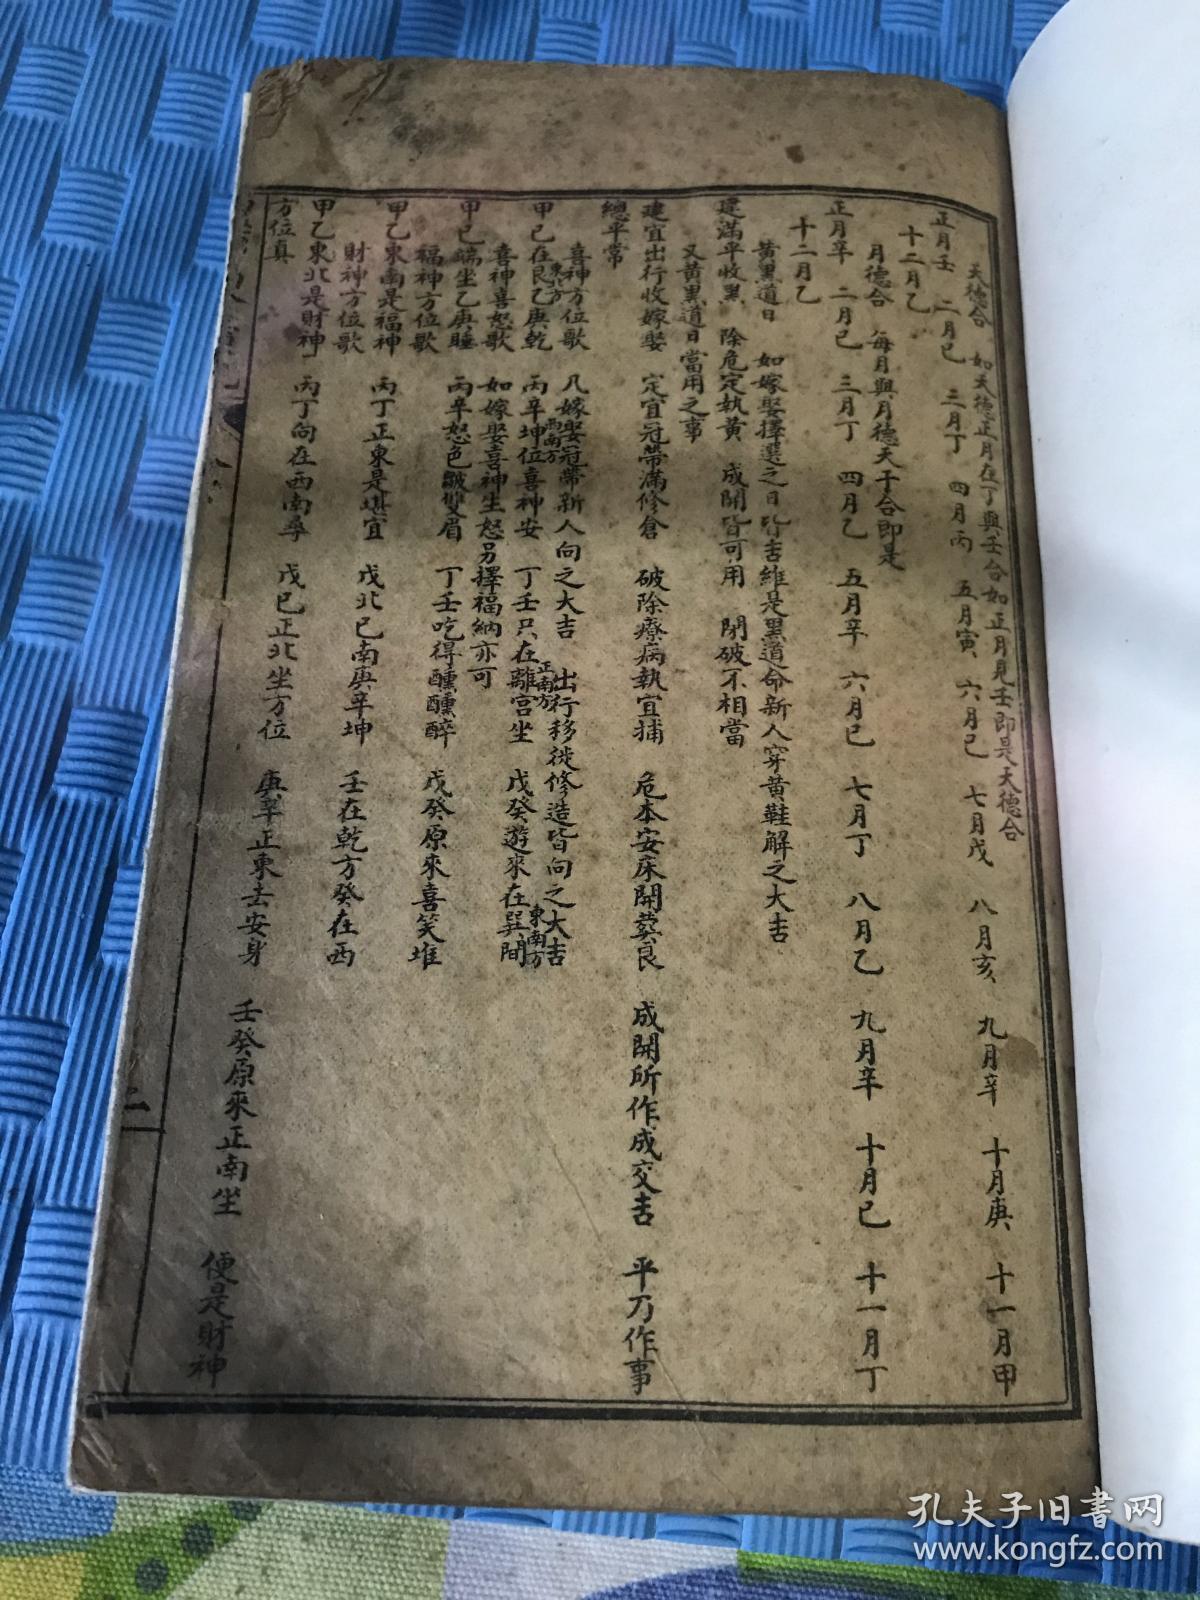 天德合　如天德正月在丁與壬合如正月見壬即是天德合
正月壬　二月巳　三月丁　四月丙　五月寅　六月巳　七月戊　八月亥　九月辛　十月庚　十一月甲
十二月乙
月德合　每月與月德天干合即是
正月辛　二月巳　三月丁　四月乙　五月辛　六月巳　七月丁　八月乙　九月辛　十月巳　十一月丁
十二月乙
黃黑道日　如嫁娶擇選之日皆吉維是黑道命新人穿黃鞋解之大吉
建滿平收黑　除危定執黃　成開皆可用　閉破不相當
又黃黑道日當用之事
建宜出行收嫁娶　定宜冠帶滿修倉　破除療病執宜捕　危本安床開葬良　成開所作成交吉　平乃作事
總平常
喜神方位歌　凡嫁娶冠帶新人向之大吉　出行移徙修造皆向之大吉
甲巳在艮乙庚乾　丙辛坤位喜神安　丁壬只在離宮坐　戊癸遊來在巽間
東北方　西南方　正南方　東南方
喜神喜怒歌　如嫁娶喜神生怒另擇福納亦可
甲巳端坐乙庚睡　丙辛怒色皺雙眉　丁壬吃得醺醺醉　戊癸原來喜笑堆
福神方位歌
甲乙東南是福神　丙丁正東是堪宜　戊北巳南庚辛坤　壬在乾方癸在西
財神方位歌
甲乙東北是財神　丙丁向在西南尋　戊巳正北坐方位　庚辛正東去安身　壬癸原來正南坐　便是財神
方位真
二
孔夫子旧書网
www.kongfz.com